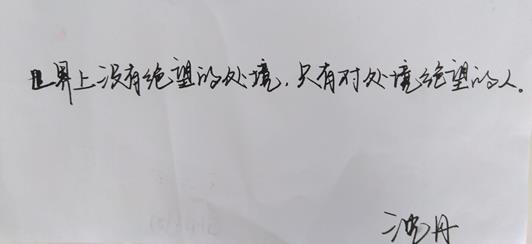 世界上没有绝望的处境，只有对处境绝望的人。
沈丹